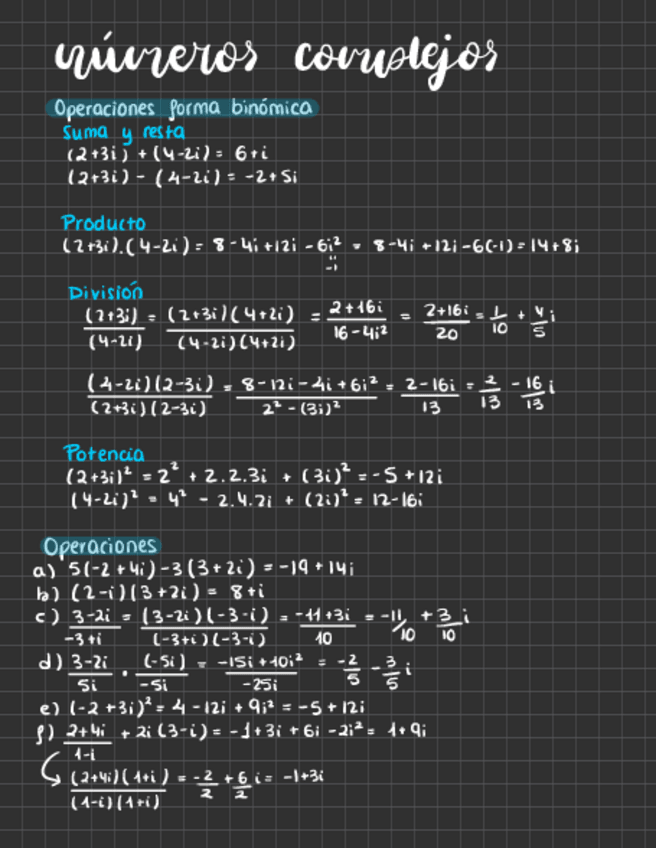 números complejos
Operaciones forma binómica
Suma y resta
(2+3i) + (4-2i) = 6+i
(2+3i) - (4-2i) = -2+5i
Producto
(2+3i).(4-2i) = 8-4i+12i-6i² = 8-4i+12i-6(-1) = 14+8i
"
-1
División
(2+3i)/(4-2i) = (2+3i)(4+2i)/(4-2i)(4+2i) = 2+16i/16-4i² = 2+16i/20 = 1/10 + 4/5 i
(4-2i)(2-3i)/(2+3i)(2-3i) = 8-12i-4i+6i²/2²-(3i)² = 2-16i/13 = 2/13 - 16/13 i
Potencia
(2+3i)² = 2² + 2.2.3i + (3i)² = -5+12i
(4-2i)² = 4² - 2.4.2i + (2i)² = 12-16i
Operaciones
a) 5(-2+4i)-3(3+2i) = -19+14i
b) (2-i)(3+2i) = 8+i
c) 3-2i/-3+i = (3-2i)(-3-i)/(-3+i)(-3-i) = -11+3i/10 = -11/10 + 3/10 i
d) 3-2i/5i . (-5i)/-5i = -15i+10i²/-25i = -2/5 - 3/5 i
e) (-2+3i)² = 4-12i+9i² = -5+12i
f) 2+4i/1-i + 2i(3-i) = -1+3i+6i-2i² = 1+9i
(2+4i)(1+i)/(1-i)(1+i) = -2/2 + 6/2 i = -1+3i